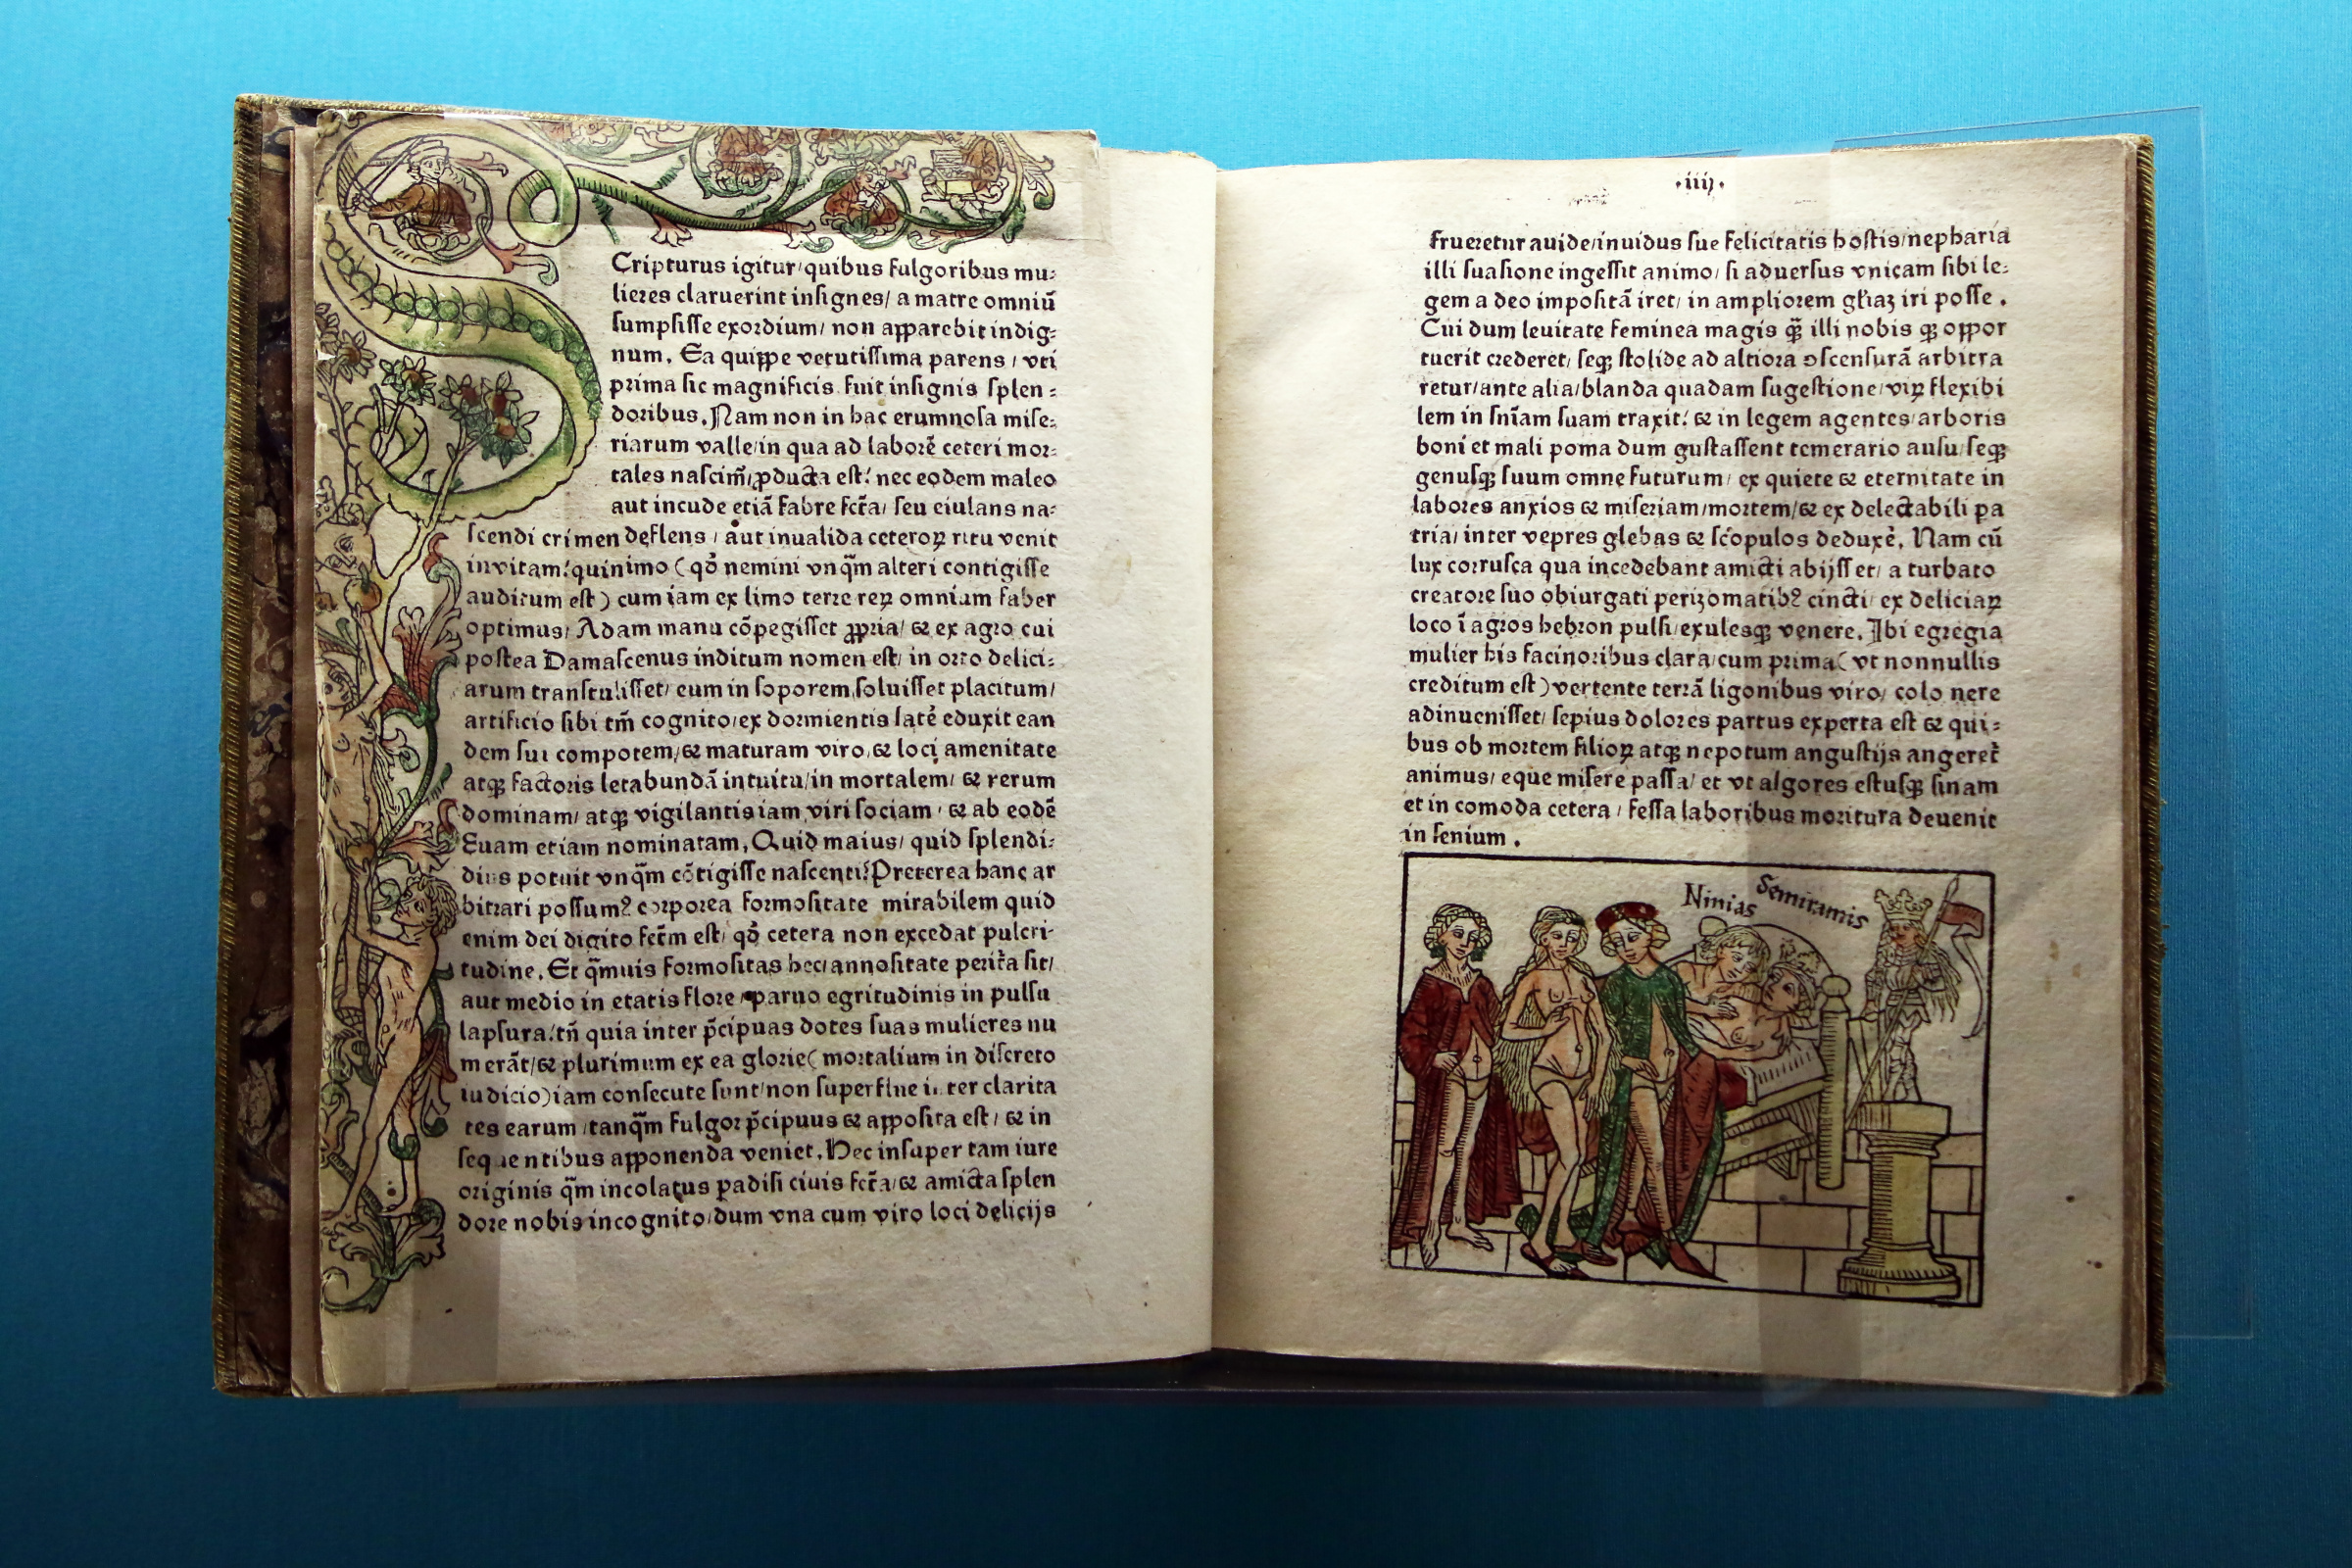 Cripturus igitur/quibus fulgoribus mu:
lieres claruerint insignes/ a matre omniū
sumpsisse exordium/ non apparebit indig:
num. Ea quippe vetutissima parens / vti
prima sic magnificis fuit insignis splen:
doribus. Nam non in hac erumnosa mise:
riarum valle/in qua ad laborē ceteri mor:
tales nascim̃/ꝓducta est: nec eodem maleo
aut incude etiā fabre fcr̃a/ seu eiulans na:
scendi crimen deflens / aut inualida ceteroꝝ ritu venit
in vitam: quinimo (qȯ nemini vnq̃m alteri contigisse
auditum est) cum iam ex limo terre reꝝ omnium faber
optimus/ Adam manu cōpegisset ꝓpria/ & ex agro cui
postea Damascenus inditum nomen est/ in orto delici:
arum transtulisset/ eum in soporem soluisset placitum/
artificio sibi tm̃ cognito/ex dormientis latē eduxit ean
dem sui compotem/& maturam viro/& loci amenitate
atqꝫ factoris letabundā intuitu/in mortalem/ & rerum
dominam/ atqꝫ vigilantis iam viri sociam / & ab eodē
Euam etiam nominatam. Quid maius/ quid splendi:
dius potuit vnq̃m cōtigisse nascenti? Preterea hanc ar
bitrari possumꝰ corporea formositate mirabilem quid
enim dei digito fcr̃m est/ qȯ cetera non excedat pulcri-
tudine. Et q̃muis formositas hec/annositate perit̃a sit/
aut medio in etatis flore/ paruo egritudinis in pulsu
lapsura: tñ quia inter p̃cipuas dotes suas mulieres nu
merāt/& plurimum ex ea glorie( mortalium in discreto
iudicio)iam consecute sunt/non superflue inter clarita
tes earum /tanq̃m fulgor p̃cipuus & apposita est/ & in
sequentibus apponenda veniet. Hec insuper tam iure
originis q̃m incolatus padisi ciuis fcr̃a/& amicta splen
dore nobis incognito/dum vna cum viro loci delicijs
·iiij·
frueretur auide/inuidus sue felicitatis hostis/nepharia
illi suasione ingessit animo/ si aduersus vnicam sibi le:
gem a deo impositā iret/ in ampliorem gl̃iaz iri posse .
Cui dum leuitate feminea magis q̃ꝫ illi nobis qꝫ oppor
tuerit crederet/ seqꝫ stolide ad altiora ꝯscensurā arbitra
retur/ante alia/blanda quadam sugestione/viꝝ flexibi
lem in sn̄iam suam traxit: & in legem agentes/arboris
boni et mali poma dum gustassent temerario ausu/seqꝫ
genusqꝫ suum omne futurum/ ex quiete & eternitate in
labores anxios & miseriam/mortem/& ex delectabili pa
tria/ inter vepres glebas & scopulos deduxē. Nam cū
lux corrusca qua incedebant amicti abijsset/ a turbato
creatore suo obiurgati perizomatibꝰ cincti/ ex deliciaꝝ
loco ī agros hebron pulsi/exulesqꝫ venere. Ibi egregia
mulier his facinoribus clara/cum prima( vt nonnullis
creditum est)vertente terrā ligonibus viro/ colo nere
adinuenisset/ sepius dolores partus experta est & qui:
bus ob mortem filioꝝ atqꝫ nepotum angustijs angeret̃
animus/ eque misere passa/ et vt algores estusqꝫ sinam
et in comoda cetera / fessa laboribus moritura deuenit
in senium .
Ninias
Semiramis